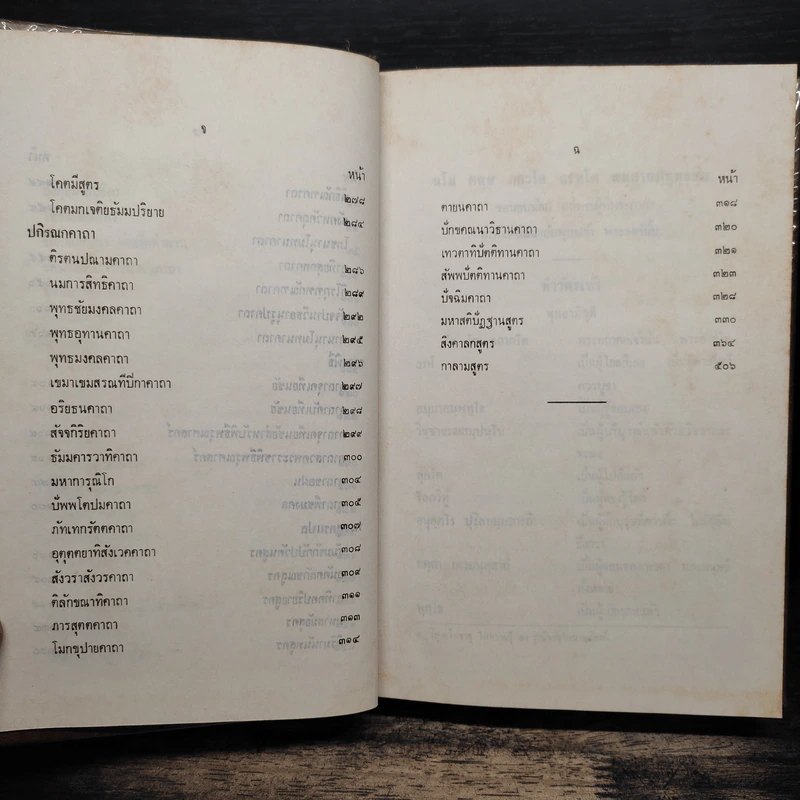 จ
หน้า
โคตมีสูตร ๒๗๘
โคตมกเจติยธัมมปริยาย ๒๘๔
ปกิรณกคาถา
ติรตนปณามคาถา ๒๘๖
นมการสิทธิคาถา ๒๘๙
พุทธชัยมงคลคาถา ๒๙๒
พุทธอุทานคาถา ๒๙๕
พุทธมงคลคาถา ๒๙๖
เขมาเขมสรณทีปิกาคาถา ๒๙๗
อริยธนคาถา ๒๙๘
สัจจกิริยคาถา ๒๙๙
ธัมมคารวาทิคาถา ๓๐๐
มหาการุณิโก ๓๐๔
ปัพพโตปมคาถา ๓๐๕
ภัทเทกรัตตคาถา ๓๐๗
อุตุตตยาทิสังเวคคาถา ๓๐๘
สังวราสังวรคาถา ๓๐๙
ติลักขณาทิคาถา ๓๑๑
ภารสุตตคาถา ๓๑๓
โมกขุปายคาถา ๓๑๔
ฉ
หน้า
ตายนคาถา ๓๑๘
ปักขคณนาวิธานคาถา ๓๒๐
เทวตาทิปัตติทานคาถา ๓๒๑
สัพพปัตติทานคาถา ๓๒๓
ปัจฉิมคาถา ๓๒๘
มหาสติปัฏฐานสูตร ๓๓๐
สิงคาลกสูตร ๓๖๔
กาลามสูตร ๕๐๖